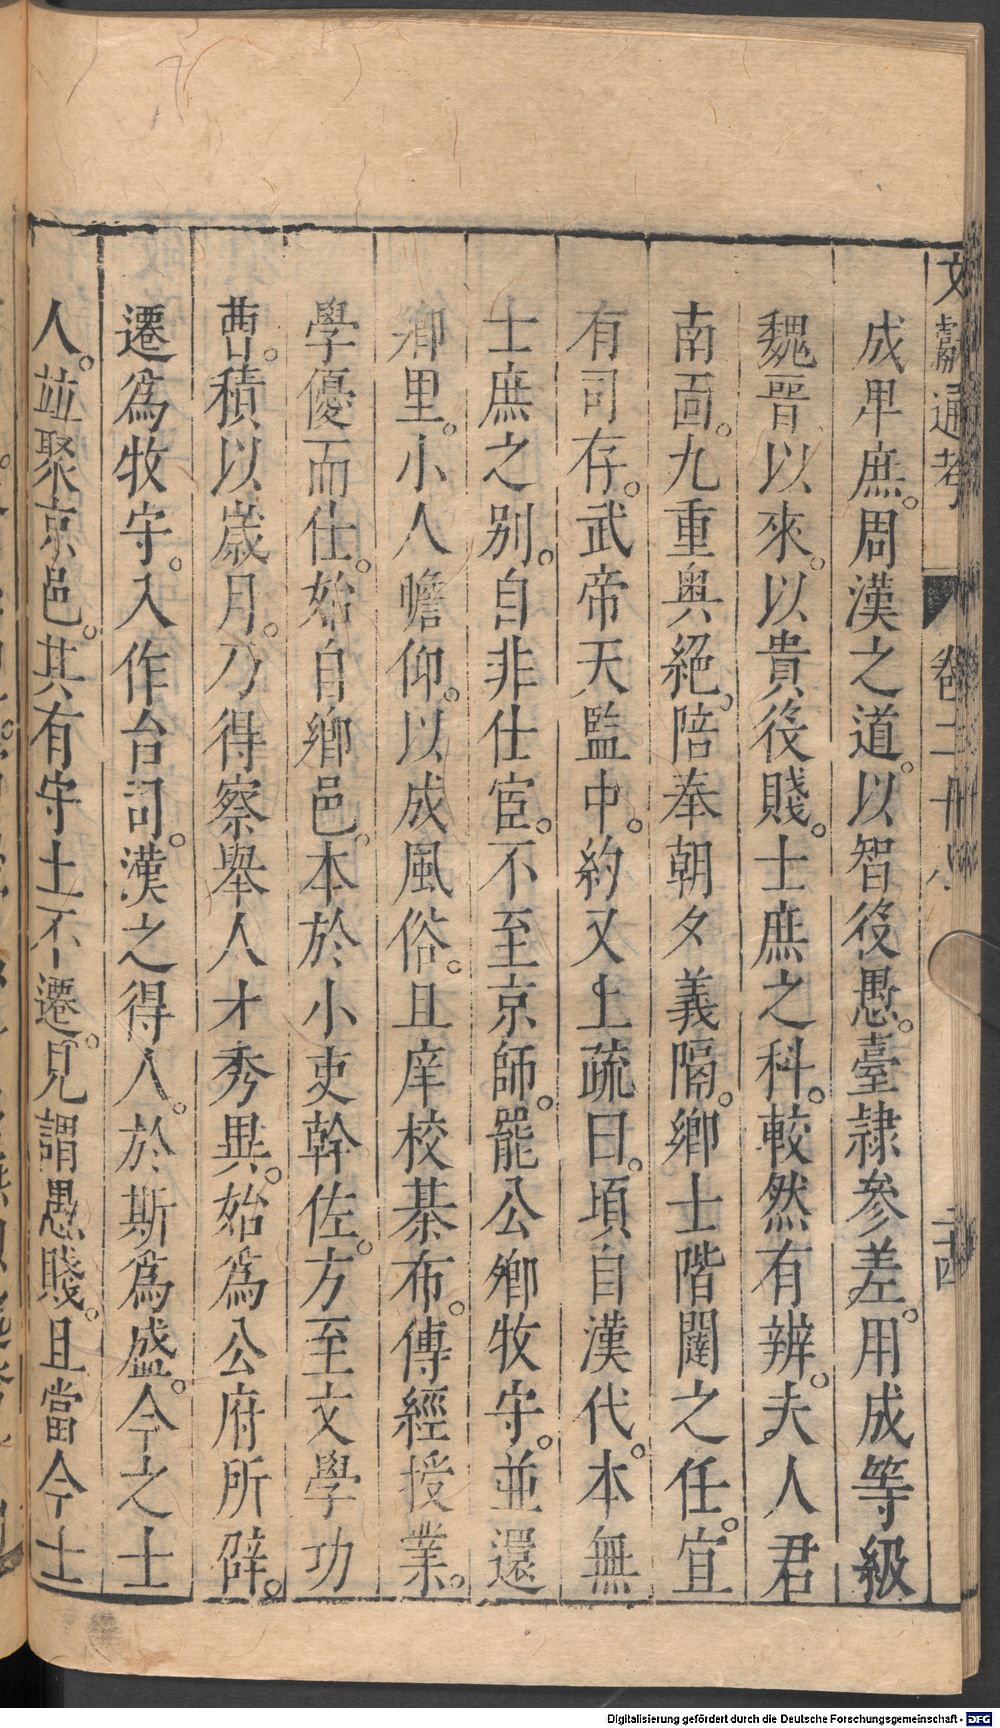 文獻通考 卷二十八
成卑庶。周漢之道。以智役愚。臺隷參差。用成等級
魏晉以來。以貴役賤。士庶之科。較然有辨。夫人君
南面。九重奥絕。陪奉朝夕義隔。卿士階闥之任。宜
有司存。武帝天監中。約又上疏曰。頃自漢代。本無
士庶之别。自非仕宦。不至京師。罷公卿牧守。並還
鄉里。小人瞻仰。以成風俗。且庠校棊布。傳經授業。
學優而仕。始自鄉邑。本於小吏幹佐。方至文學功
曹。積以歲月。乃得察舉人才秀異。始爲公府所辟。
遷爲牧守。入作台司。漢之得人。於斯爲盛。今之士
人。並聚京邑。其有守土不遷。見謂愚賤。且當今士
Digitalisierung gefördert durch die Deutsche Forschungsgemeinschaft - DFG